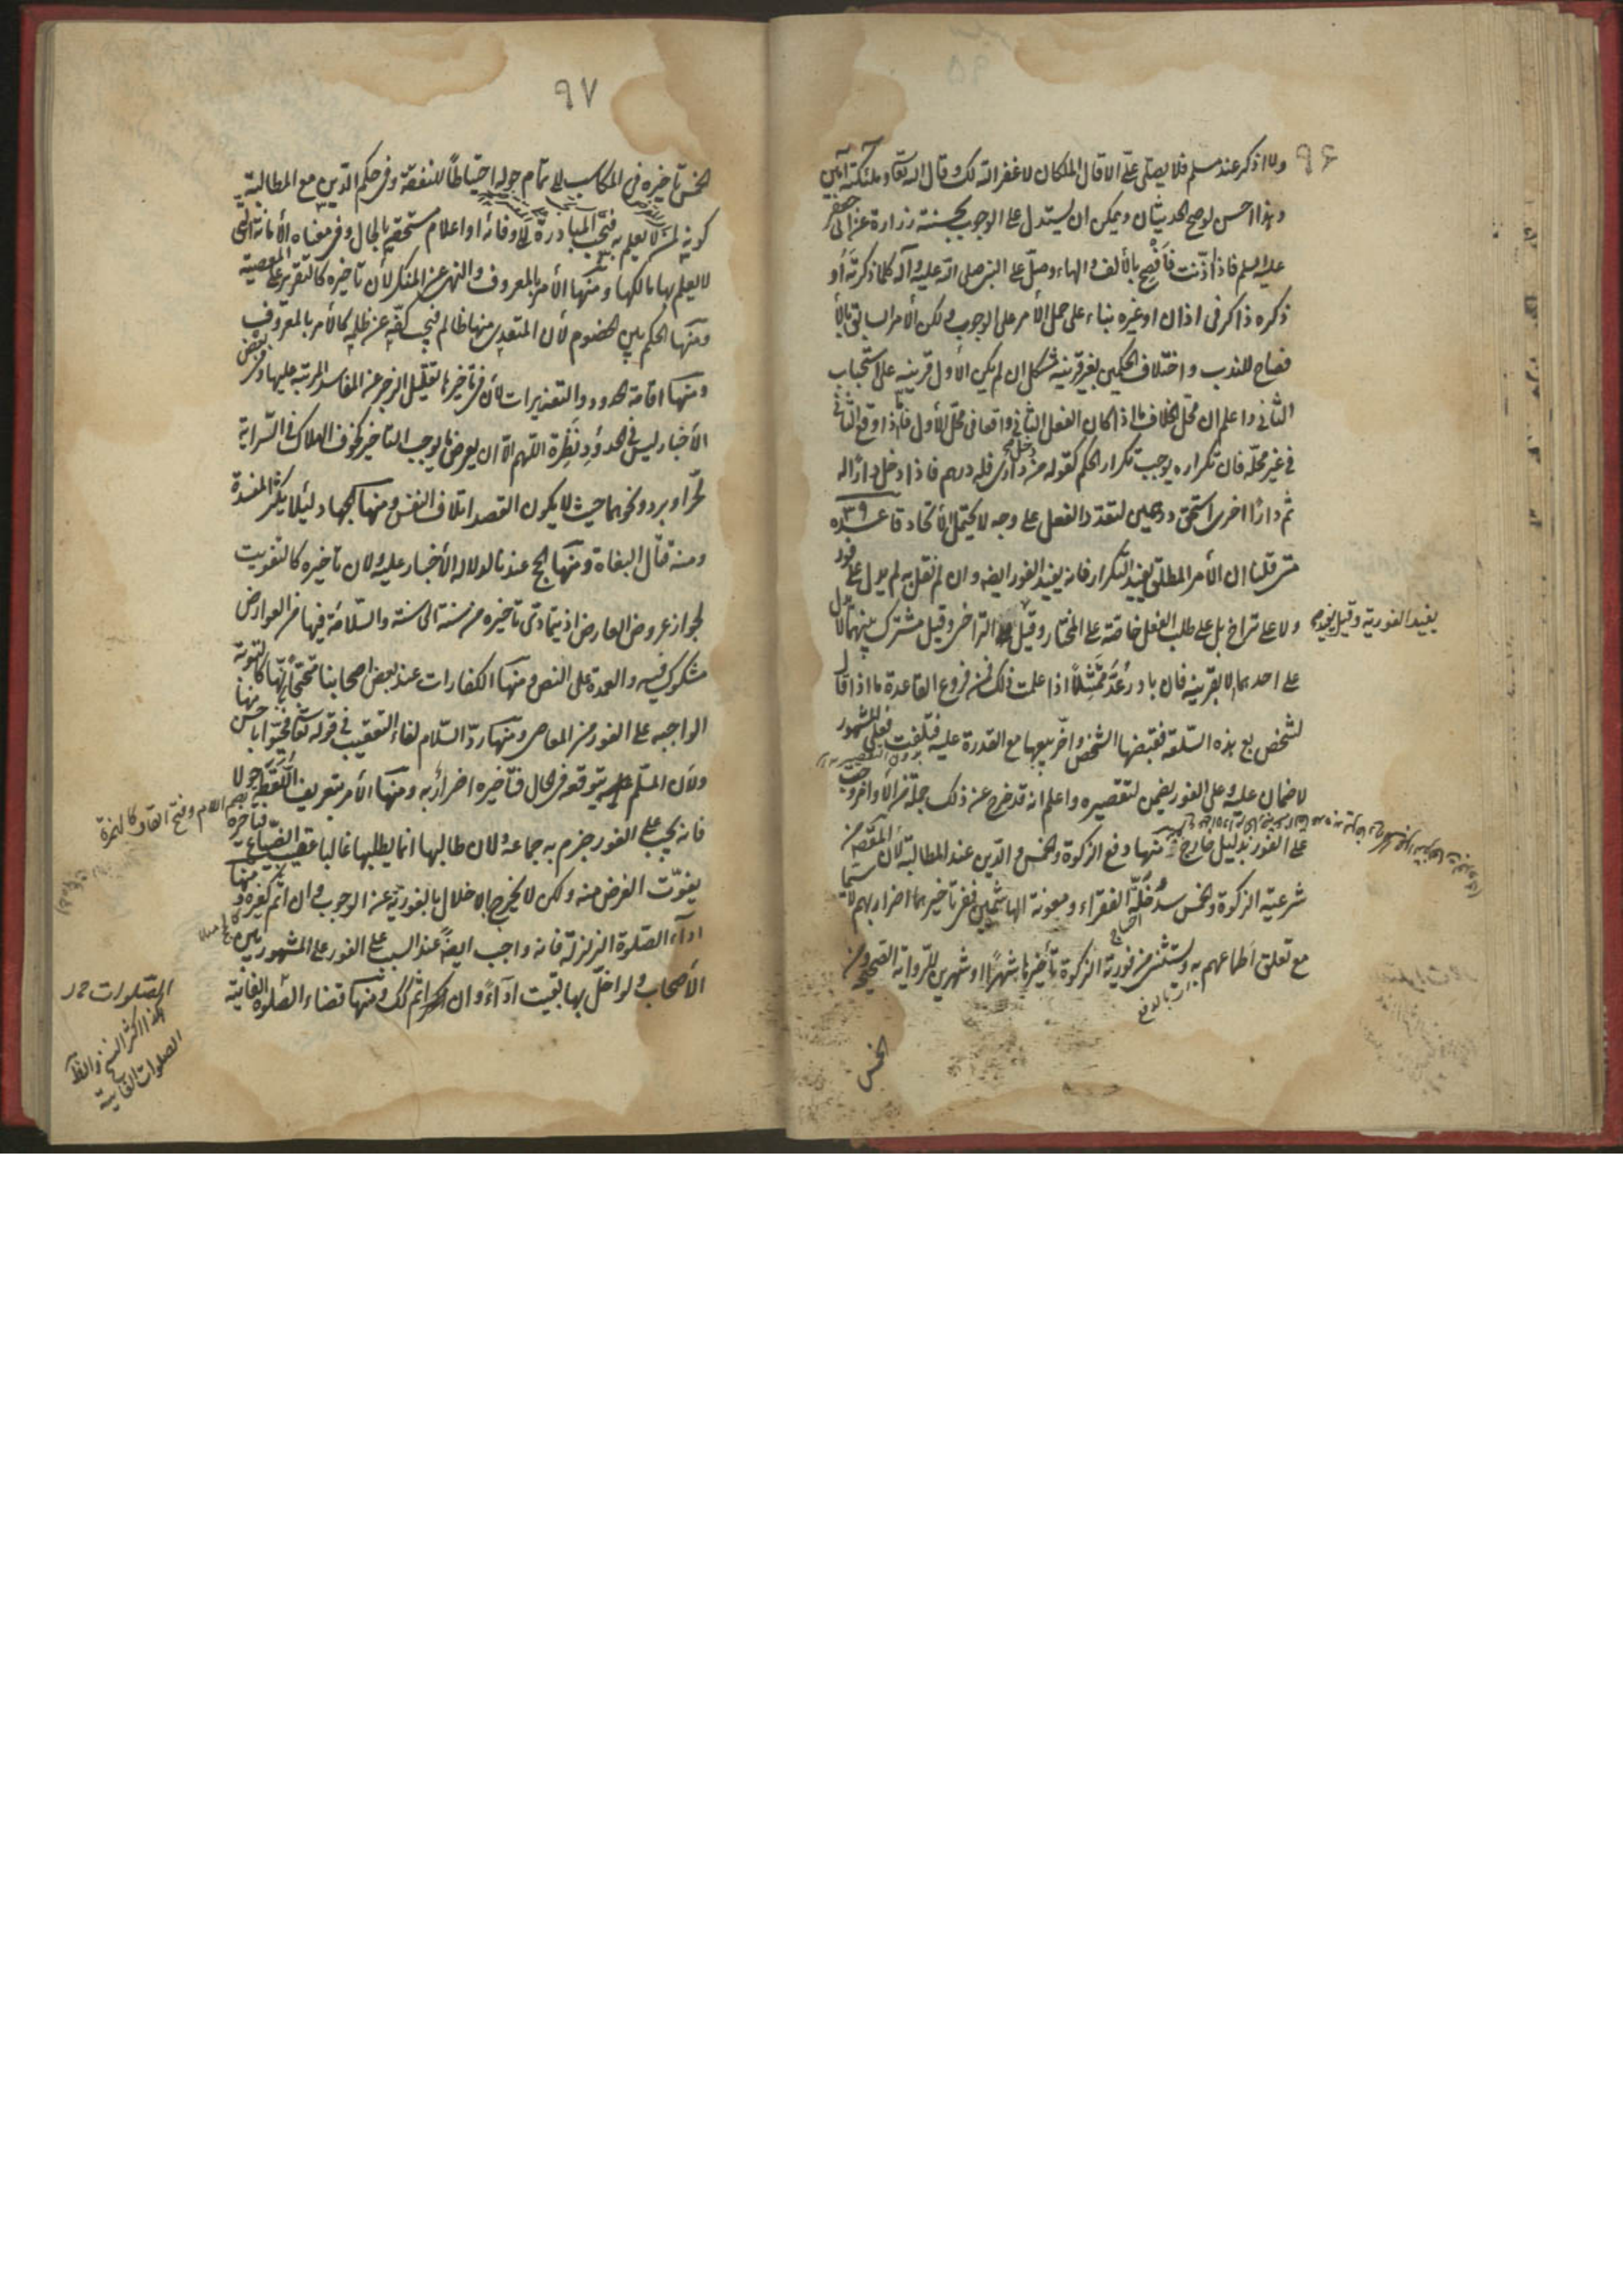 ٩۶
ولا اذكر عند مسلم فلا يصلى علىّ الا قال الملكان لا غفر الله لك وقال الله تعا وملئكته آمين
وهذا احسن لو صح الحديثان ويمكن ان يستدل على الوجوب بحسنة زرارة عن ابى جعفر
عليه السلم فاذا اذّنت فأفصح بالألف والهاء وصلّ على النبى صلى الله عليه وآله كلما ذكرته أو
ذكره ذاكر فى اذان او غيره بناء على حمل الأمر على الوجوب ولكن الأمر السابق بالأ
فصاح للندب واختلاف الحكمين بغير قرينة مشكل ان لم يكن الاول قرينة على استحباب
الثانى واعلم ان محل الخلاف ما اذا كان الفعل الثانى واقعا فى محل الأول فامّا اذا وقع الثانى
فى غير محله فان تكراره يوجب تكرار الحكم كقوله من دخل دارى فله درهم فاذا دخل دارًا له
ثم دارًا اخرى استحق درهمين لتعدد الفعل على وجه لا يحتمل الأتحاد قاعده ٣٩
متى قلنا ان الأمر المطلق يفيد التكرار فانه يفيد الفور ايضه وان لم نقل به لم يدل على فور
ولا على تراخ بل على طلب الفعل خاصّة على المختار وقيل التراخى وقيل مشترك بينهما لا يدل
يفيد الفورية وقيل يفيد
على احدهما الا بقرينة فان بادر عُدّ ممتثلاً اذا علمت ذلك فمن فروع القاعدة ما اذا قال
لشخص بع هذه السّلعة فقبضها الشخص واخّر بيعها مع القدرة عليه فتلفت فعلى المشهور
لا ضمان عليه وعلى الفور يضمن لتقصيره واعلم انه قد خرج عن ذلك جملة من الأوامر وجبت
على الفور بدليل خارج منها دفع الزكوة والخمس والدين عند المطالبة لأن المقصد من
شرعيّة الزكوة والخمس سدُّ خلّة الفقراء ومعونة الهاشميين ففى تأخيرهما اضرار بهم لا سيّما
مع تعلق أطماعهم به ويستثنى من فورية الزكوة تأخيرها شهرًا او شهرين للرواية الصحيحة ومن
الخمس
٩٧
الخمس تاخيره فى المكاسب الى تمام حوله احتياطًا للنفقة وفى حكم الدين مع المطالبة به
كونه لمن لا يعلم به فيجب المبادرة الى وفائه او اعلام مستحقه بالحال وفى معناه الأمانة التى
لا يعلم بها مالكها ومنها الأمر بالمعروف والنهى عن المنكر لأن تاخيره كالتقرير على المعصية
ومنها الحكم بين الخصوم لأن المتعدى منها ظالم فيجب كفّه عن ظلمه كالأمر بالمعروف
ومنها اقامة الحدود والتعذيرات لأن فى تأخيرها تقليل الزجر عن المفاسد المرتبة عليها وفى بعض
الأخبار ليس فى الحدود نَظِرة اللهم الّا ان يعرض ما يوجب التاخير كخوف الهلاك فى السّراية
لحرّ او برد ونحوهما حيث لا يكون القصد اتلاف النفس ومنها الجهاد لئلا يكثر المفسدة
ومنه قتال البغاة ومنها الحج عندنا لدلالة الأخبار عليه ولان تأخيره كالتفويت
لجواز عروض العارض اذ يتمادى تأخيره من سنة الى سنة والسّلامة فيها من العوارض
مشكوك فيه والعمدة على النص ومنها الكفارات عند بعض اصحابنا محتجًا بأنّها كالتوبة
الواجبه على الفور من المعاصى ومنها ردّ السّلام لفاء التعقيب فى قوله تعا فحيّوا باحسن منها
ولأن المسلّم عليه يتوقعه فى الحال فتأخيره اضرار به ومنها الأمر بتعريف اللقطة حولا
بضم اللام وفتح القاف كالهمزة
فانه يجب على الفور جزم به جماعة ولان طالبها انما يطلبها غالبا عقيب الضياع فتأخره
يفوّت الغرض منه ولكن لا يخرج بالاخلال بالفورية عن الوجوب وان اثم كغيره ومنها
اداء الصّلوة الزلزلة فانه واجب ايضهً عند السبب على الفور على المشهور بين
الأصحاب ولو اخلّ بها بقيت اداءً وان اثم كك ومنها قضاء الصّلوة الفائتة
الصّلوات
كذا اكثر النسخ والظ
الصلوات الفايتة